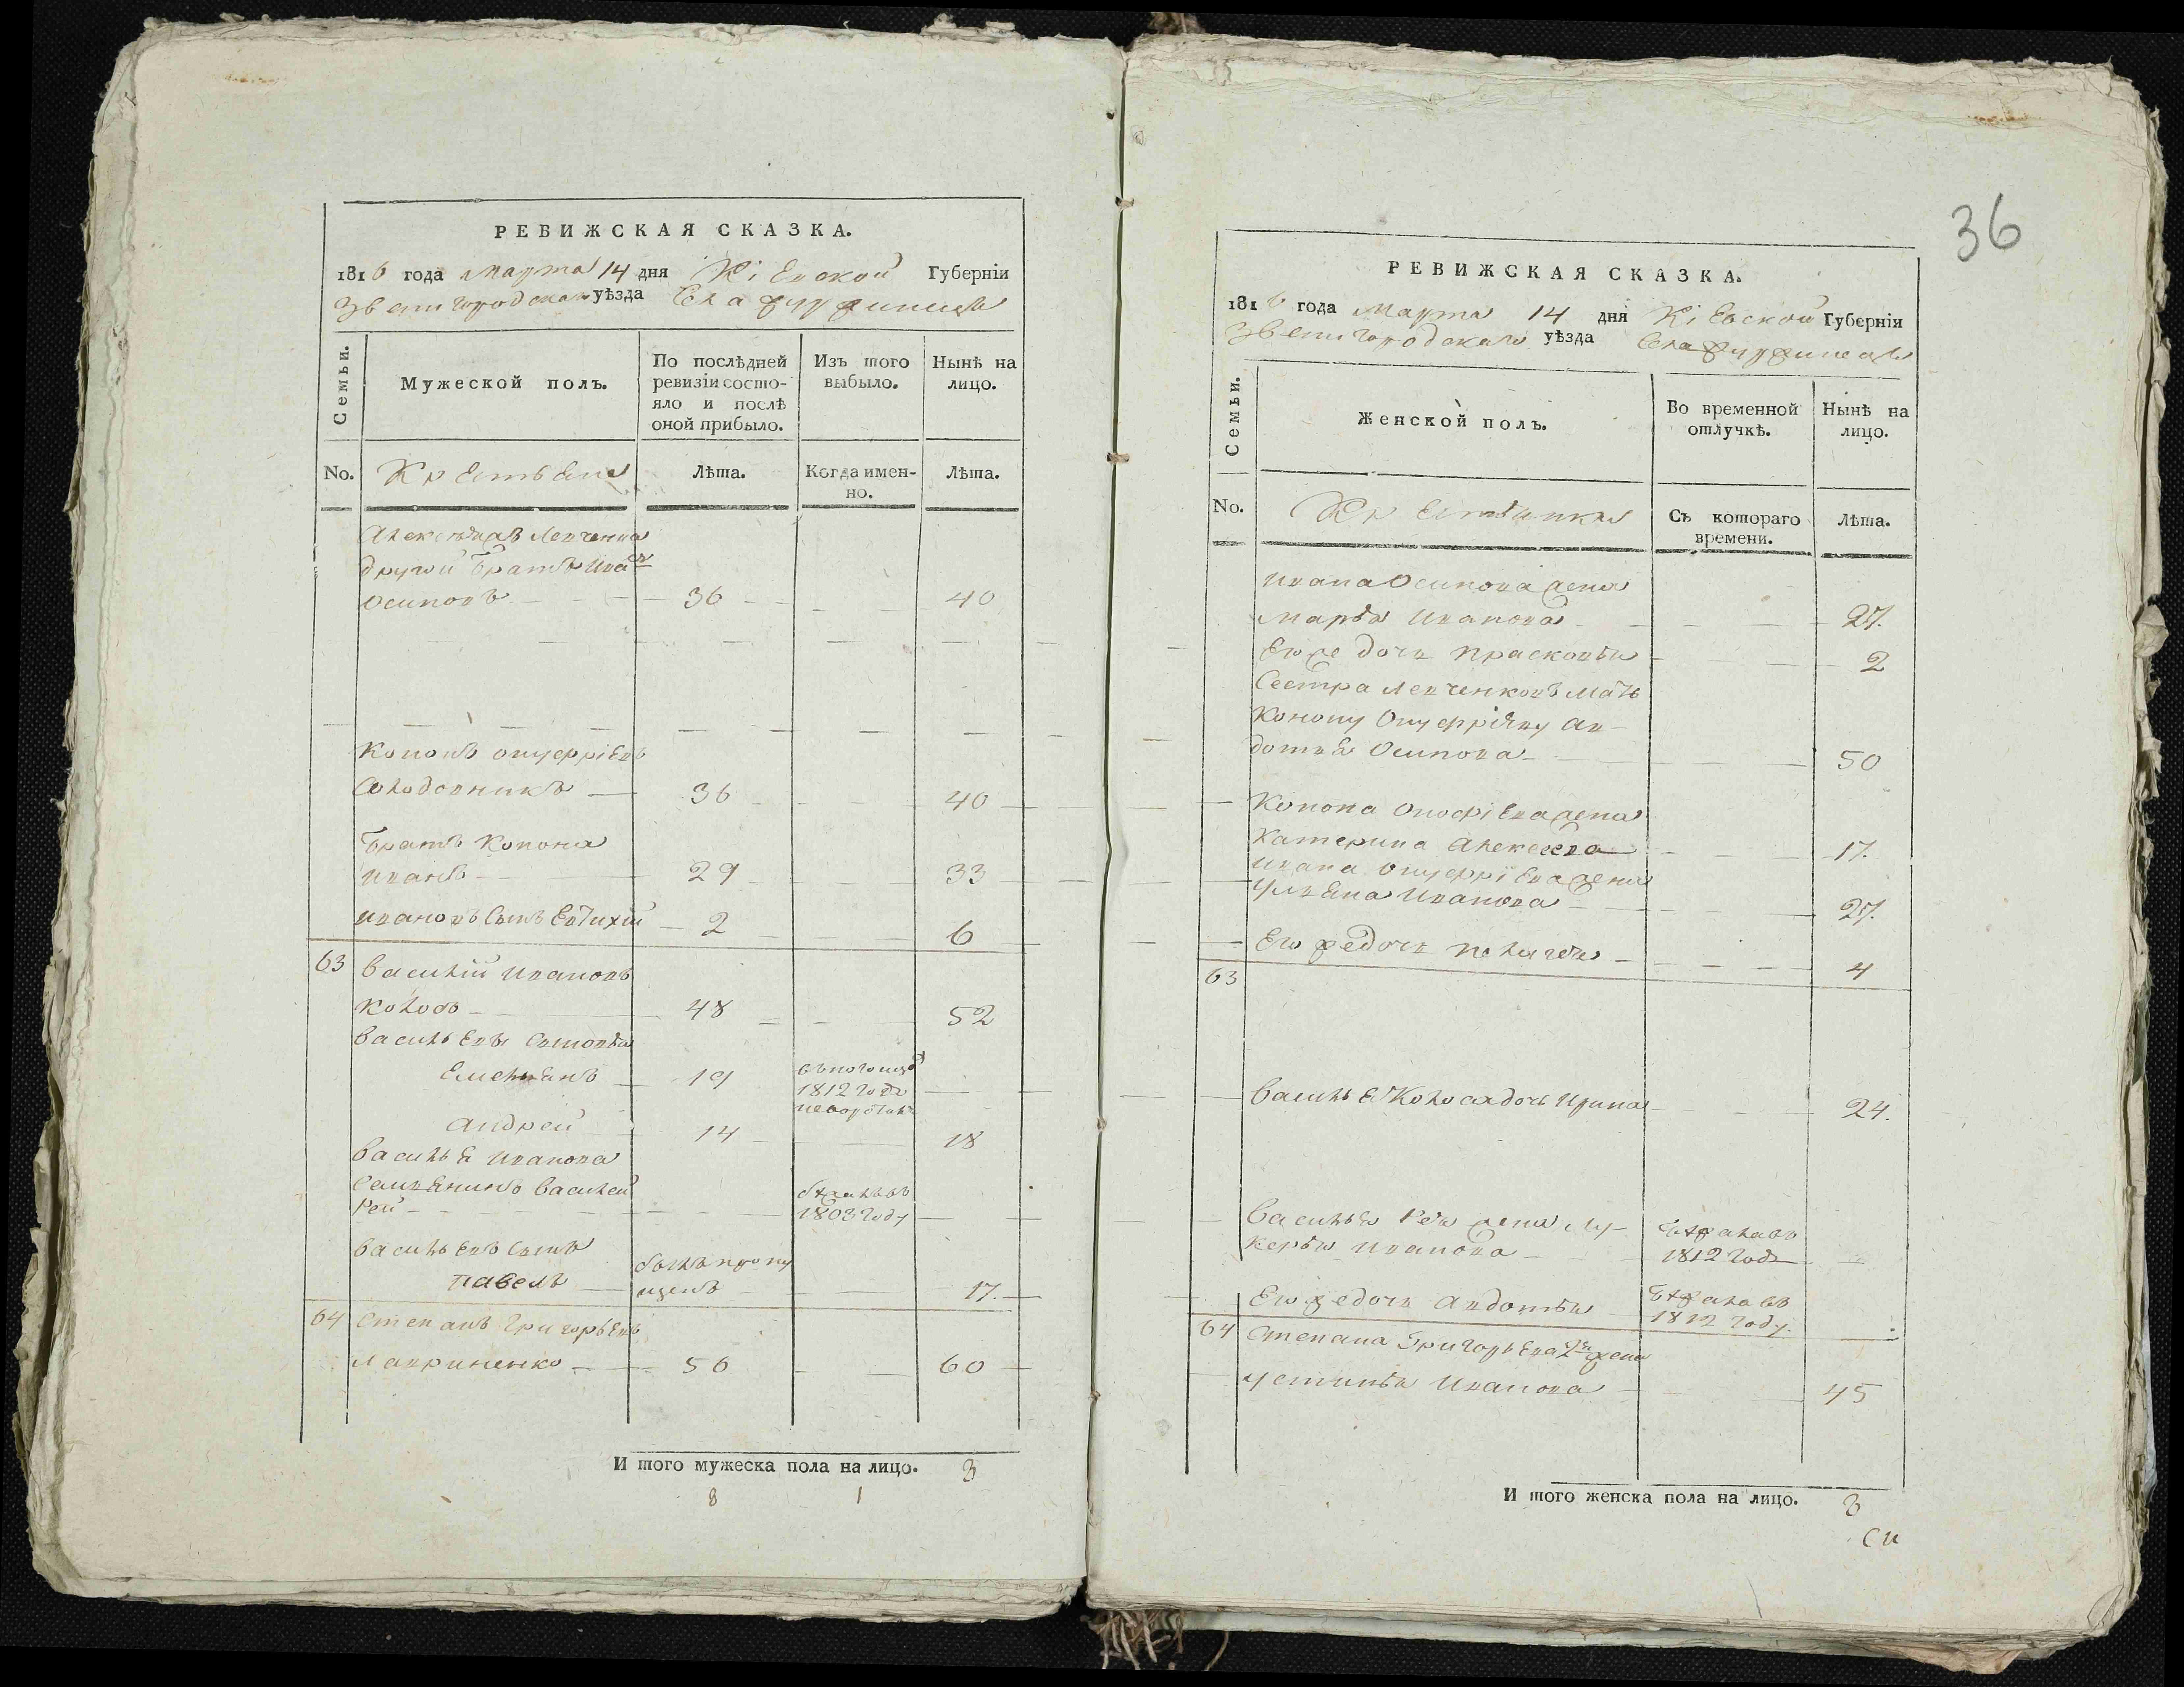 РЕВИЖСКАЯ СКАЗКА.
1816 года Марта 14 дня Кіевской Губерніи
Звенигородскаго уѣзда Села
Семьи.
Мужеской полъ.
По послѣдней ревизіи состо-
яло и послѣ оной прибыло.
Изъ того выбыло.
Нынѣ на лицо.
No.
Крестьяне
Лѣта.
Когда имен-
но.
Лѣта.
Александра Левченка
другой братъ Иванъ
Осиповъ 36 40
Кононъ Онуфріевъ
36 40
Братъ Конона
Иванъ 29 33
Ивановъ Сынъ Евтихій 2 6
63 Василій Ивановъ
Колобъ 48 52
Васильевы Сыновья
Емельянъ 19
1812 года
Андрей 14 18
Василья Иванова
Василей
Рей
бежалъ въ
1803 году
Васильевъ Сынъ
Павелъ
былъ пропу
щенъ
17.
64 Степанъ Григорьевъ
Лавриненко 56 60
И того мужеска пола на лицо. 3
8 1
36
РЕВИЖСКАЯ СКАЗКА.
1816 года Марта 14 дня Кіевской Губерніи
Звенигородскаго уѣзда Села
Семьи.
Женской полъ.
Во временной отлучкѣ.
Нынѣ на лицо.
No.
Крестьянки
Съ котораго времени.
Лѣта.
Ивана Осипова жена
Марья Иванова 27.
Его же дочь Прасковья 2
Сестра Левченковъ мать
Конону Онуфріеву Ав-
дотья Осипова 50
Конона Онофріева жена
Катерина Алексеева 17.
Ивана Онуфріева жена
Ульяна Иванова 27.
Его же дочь Пелагея 4
63
дочь Ирина 24.
Василья Рея жена Лу-
керья Иванова
бежала въ
1812 годе
Его же дочь Авдотья
бежала въ
1812 году.
64 Степана Григорьева 2я жена
Устинья Иванова 45
И того женска пола на лицо. 8